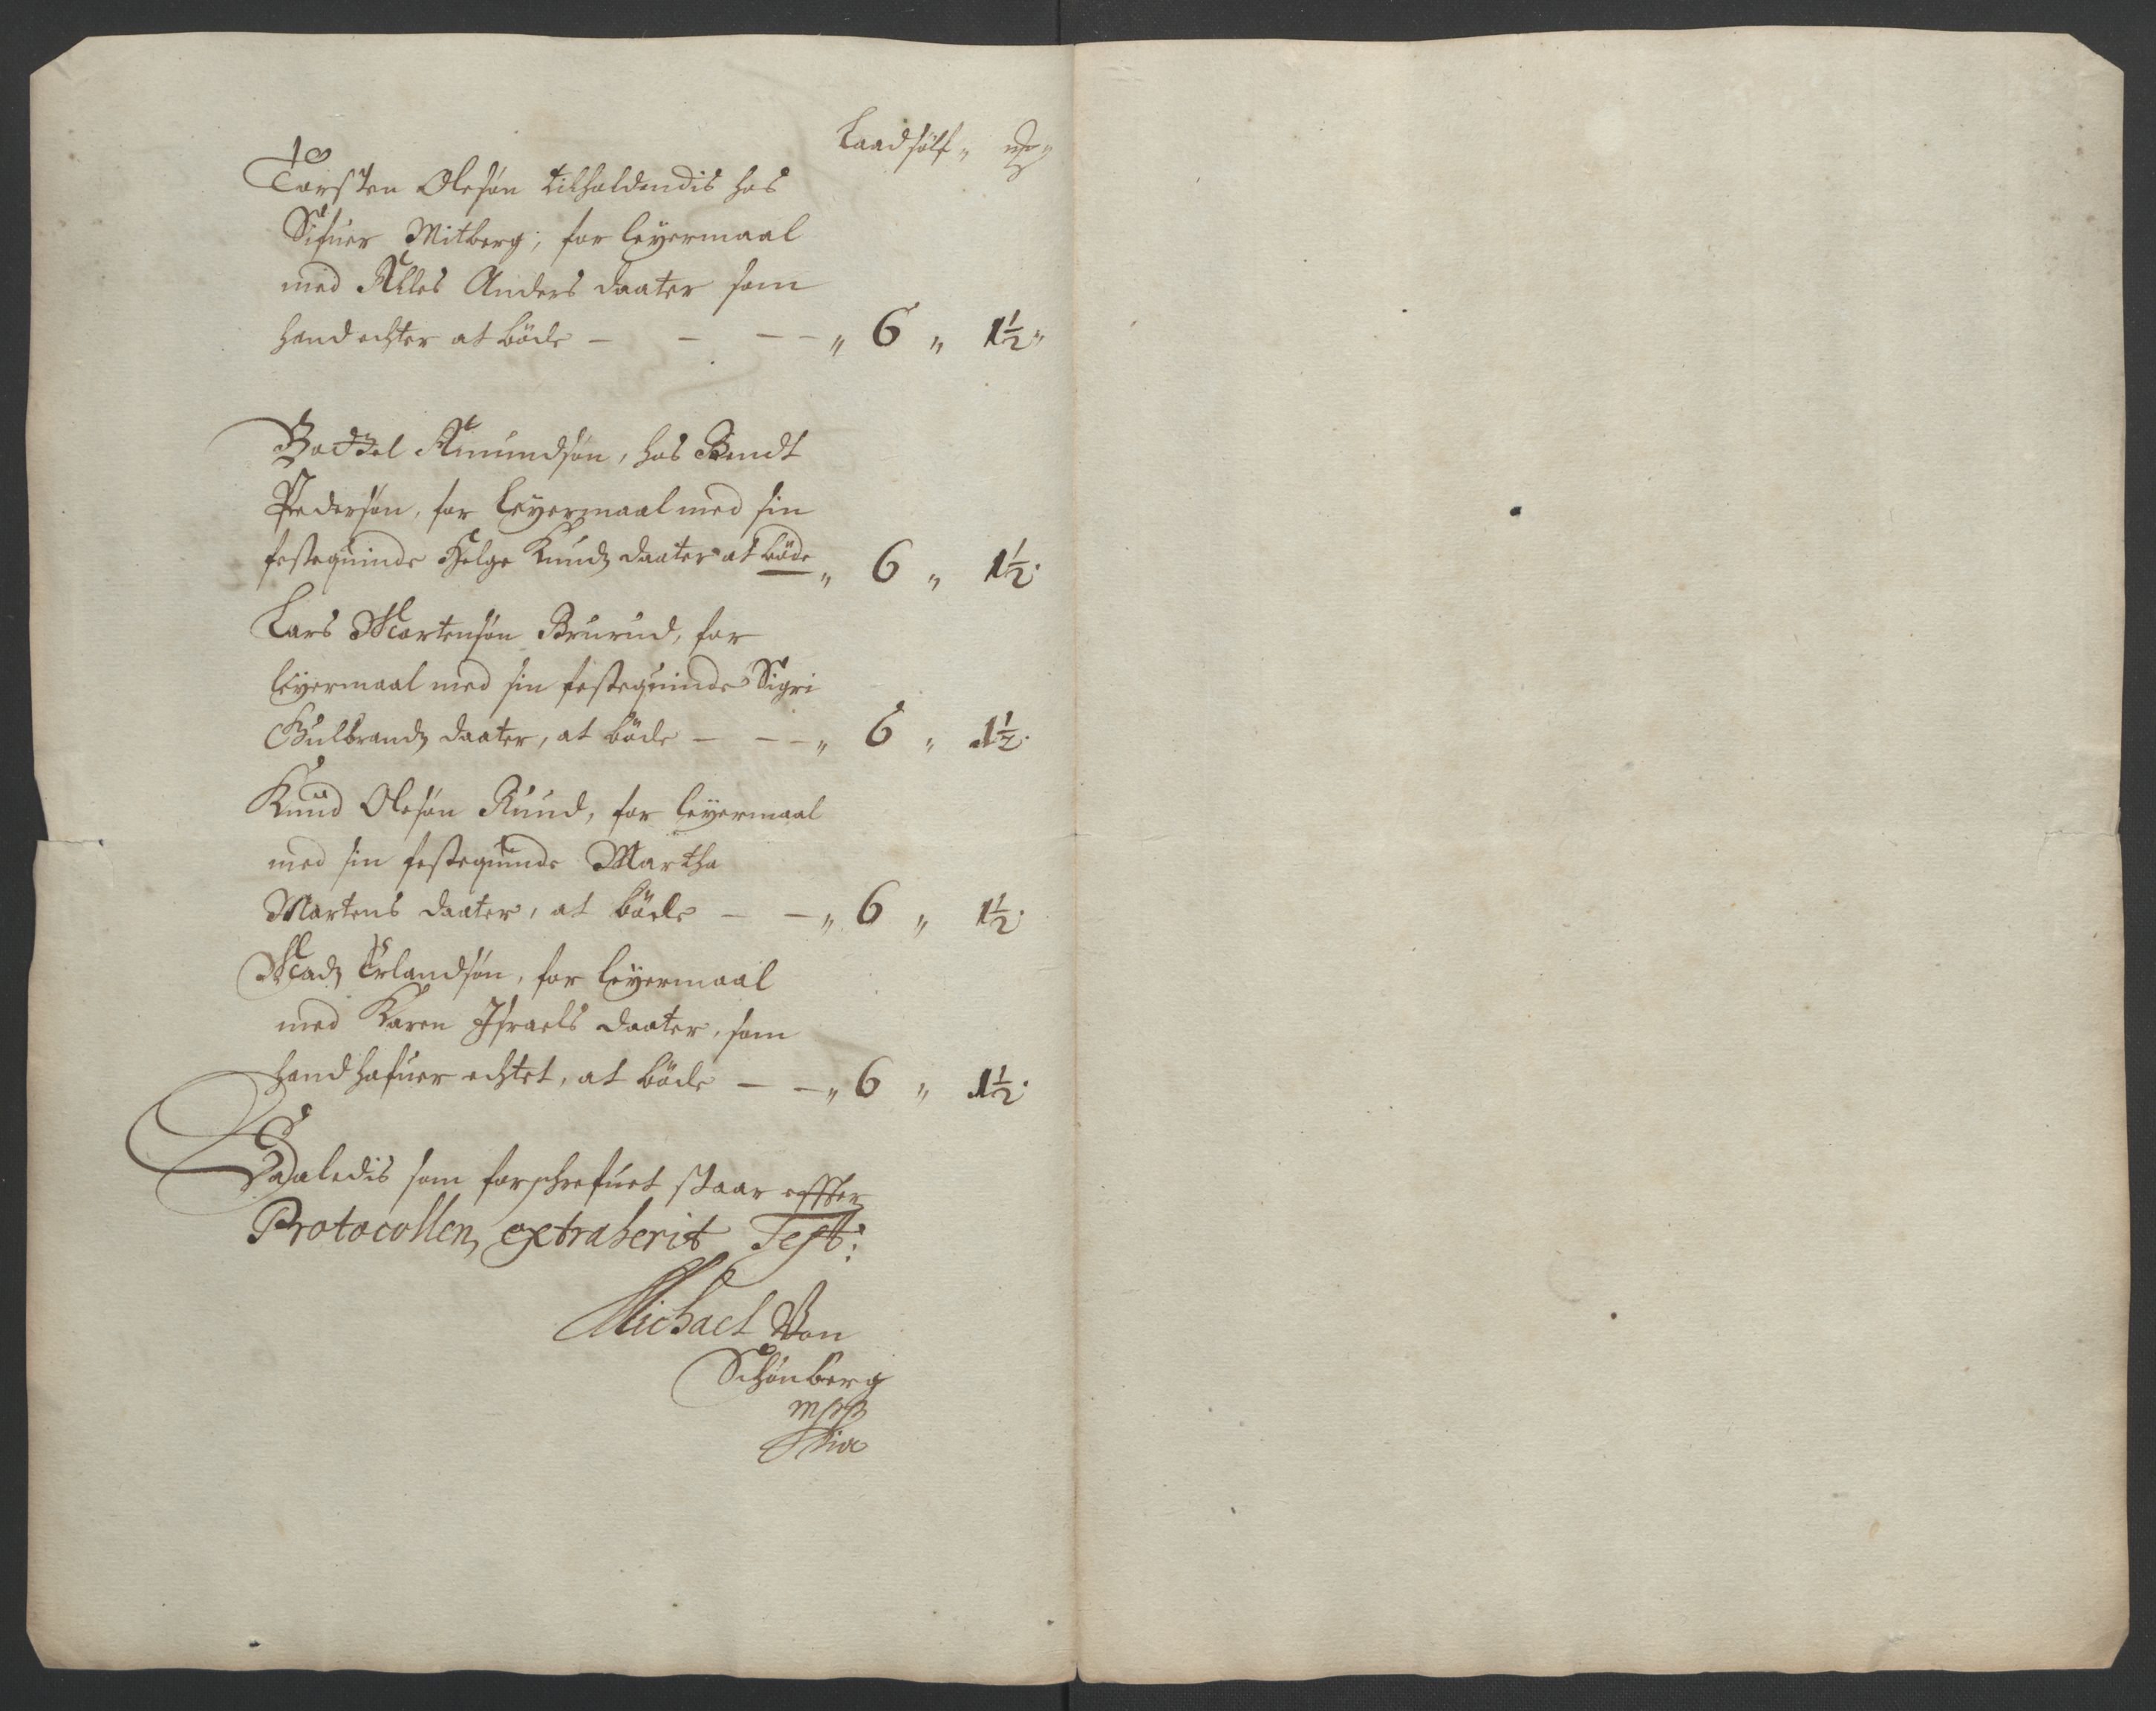 Laadsølf „
Torsten Olesøn tilholdendis hos
Sifuer Mitberg; for leyermaal
med Alles Anders daater som
hand echter at böde – – – – „ 6 „ 1½ „
Bottel Amundsøn, hos Bendt
Pedersøn, for leyermaal med sin
festequinde Helge Knudz daater at böde „ 6 „ 1½.
Lars Mortensøn Brurud, for
leyermaal med sin festequinde Sigri
Gulbrandz daater, at böde – – – „ 6 „ 1½.
Knud Olesøn Ruud, for leyermaal
med sin festequinde Martha
Martens daater, at böde – – „ 6 „ 1½.
Madz Erlandsøn, for leyermaal
med Karen Israels daater, som
hand hafuer echtet, at böde – – „ 6 „ 1½.
Saaledis som forschrefuet staar effter
Protocollen, extraherit Test:
Michael Von
Schønberg
mpp